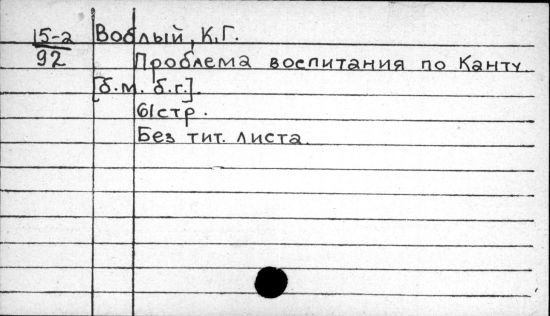 15-2 Воблый, К.Г.
92 Проблема воспитания по Канту
[б.м. б.г.].
61стр.
Без тит. листа.